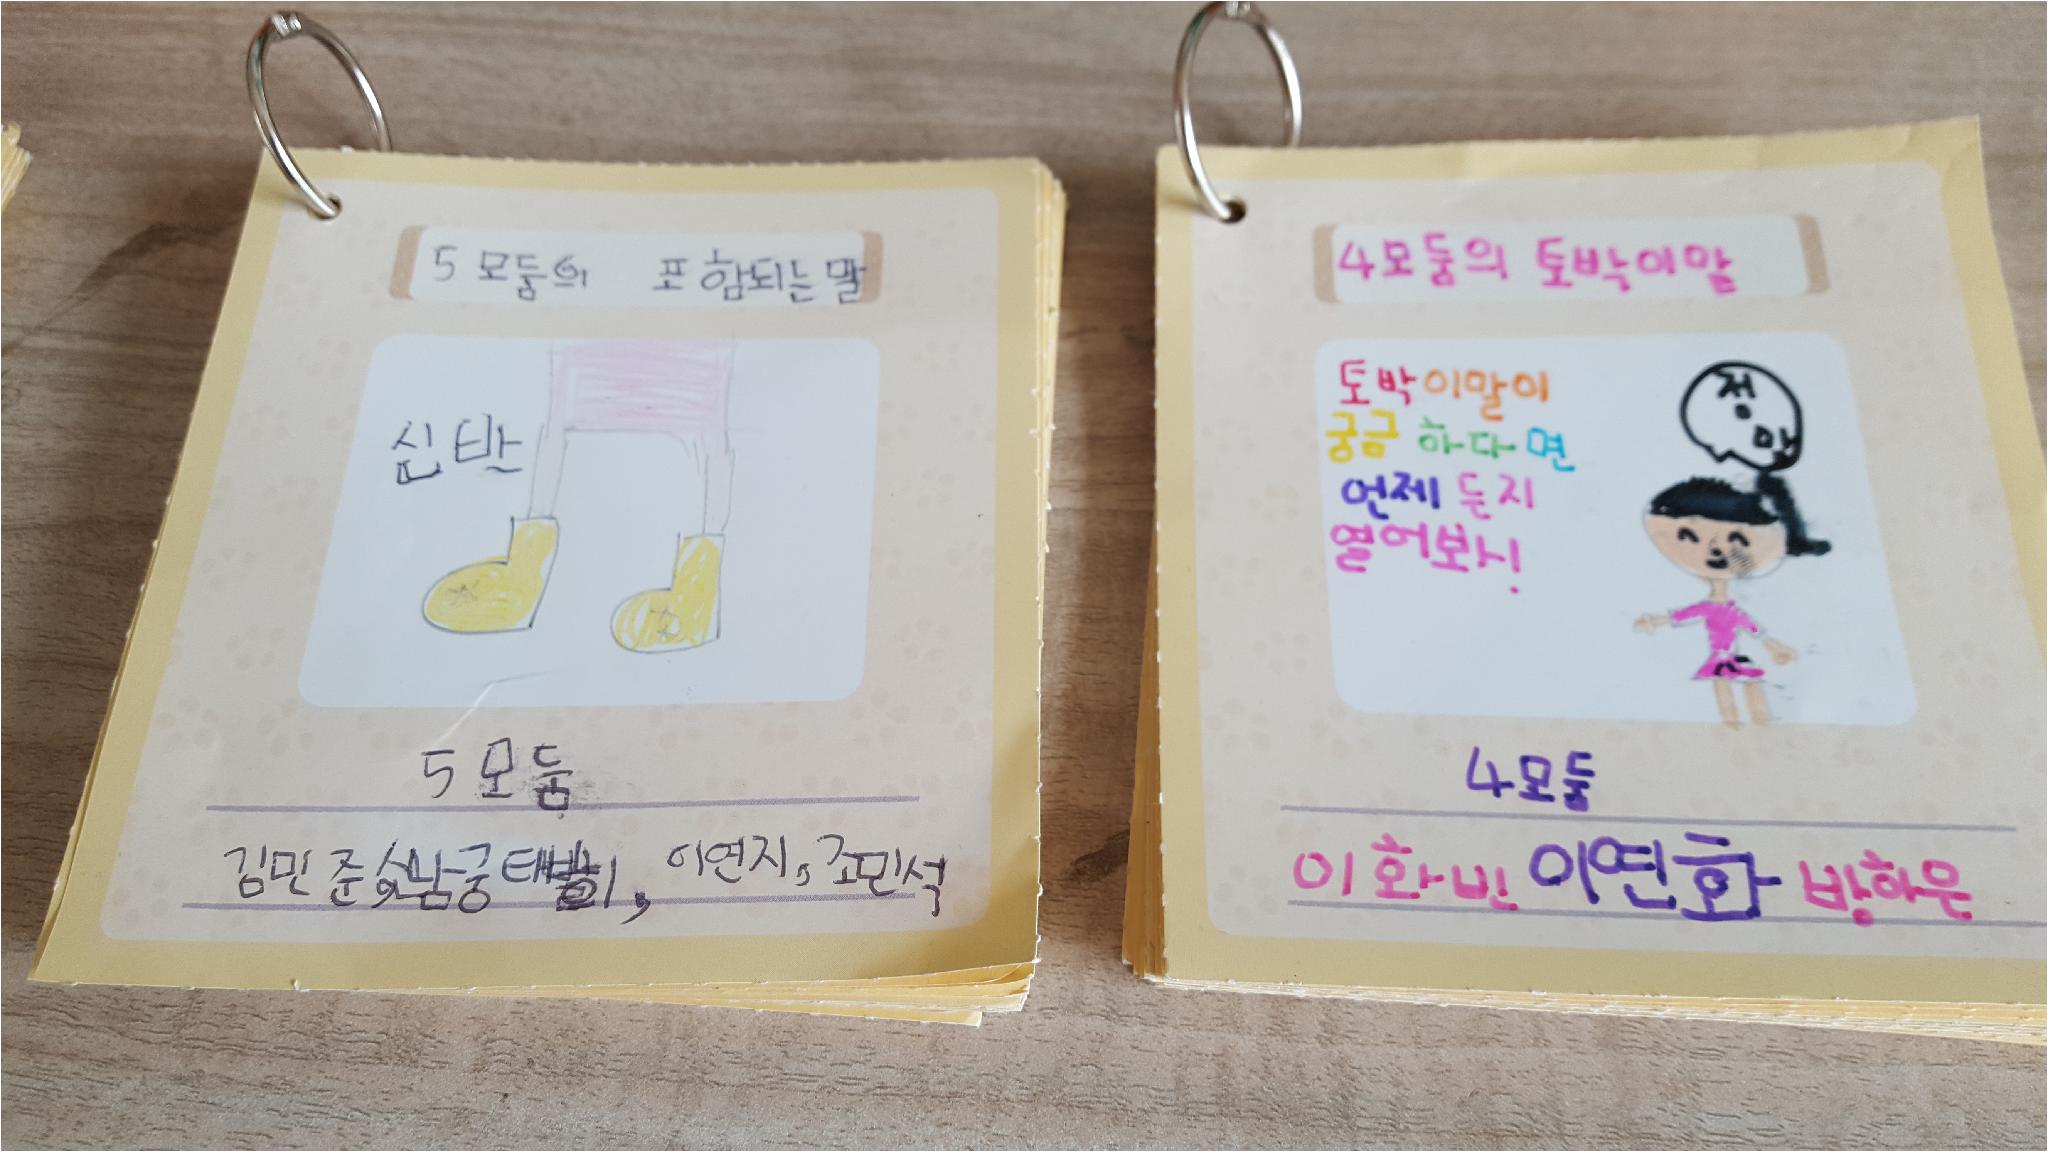 5 모둠의 포함되는 말
신반
5 모둠
김민준, 남궁태 이연지, 조민석
4모둠의 토박이말
토박이말이
궁금하다면
언제든지
열어보시!
정말
4모둠
이화빈 이연화 방하은